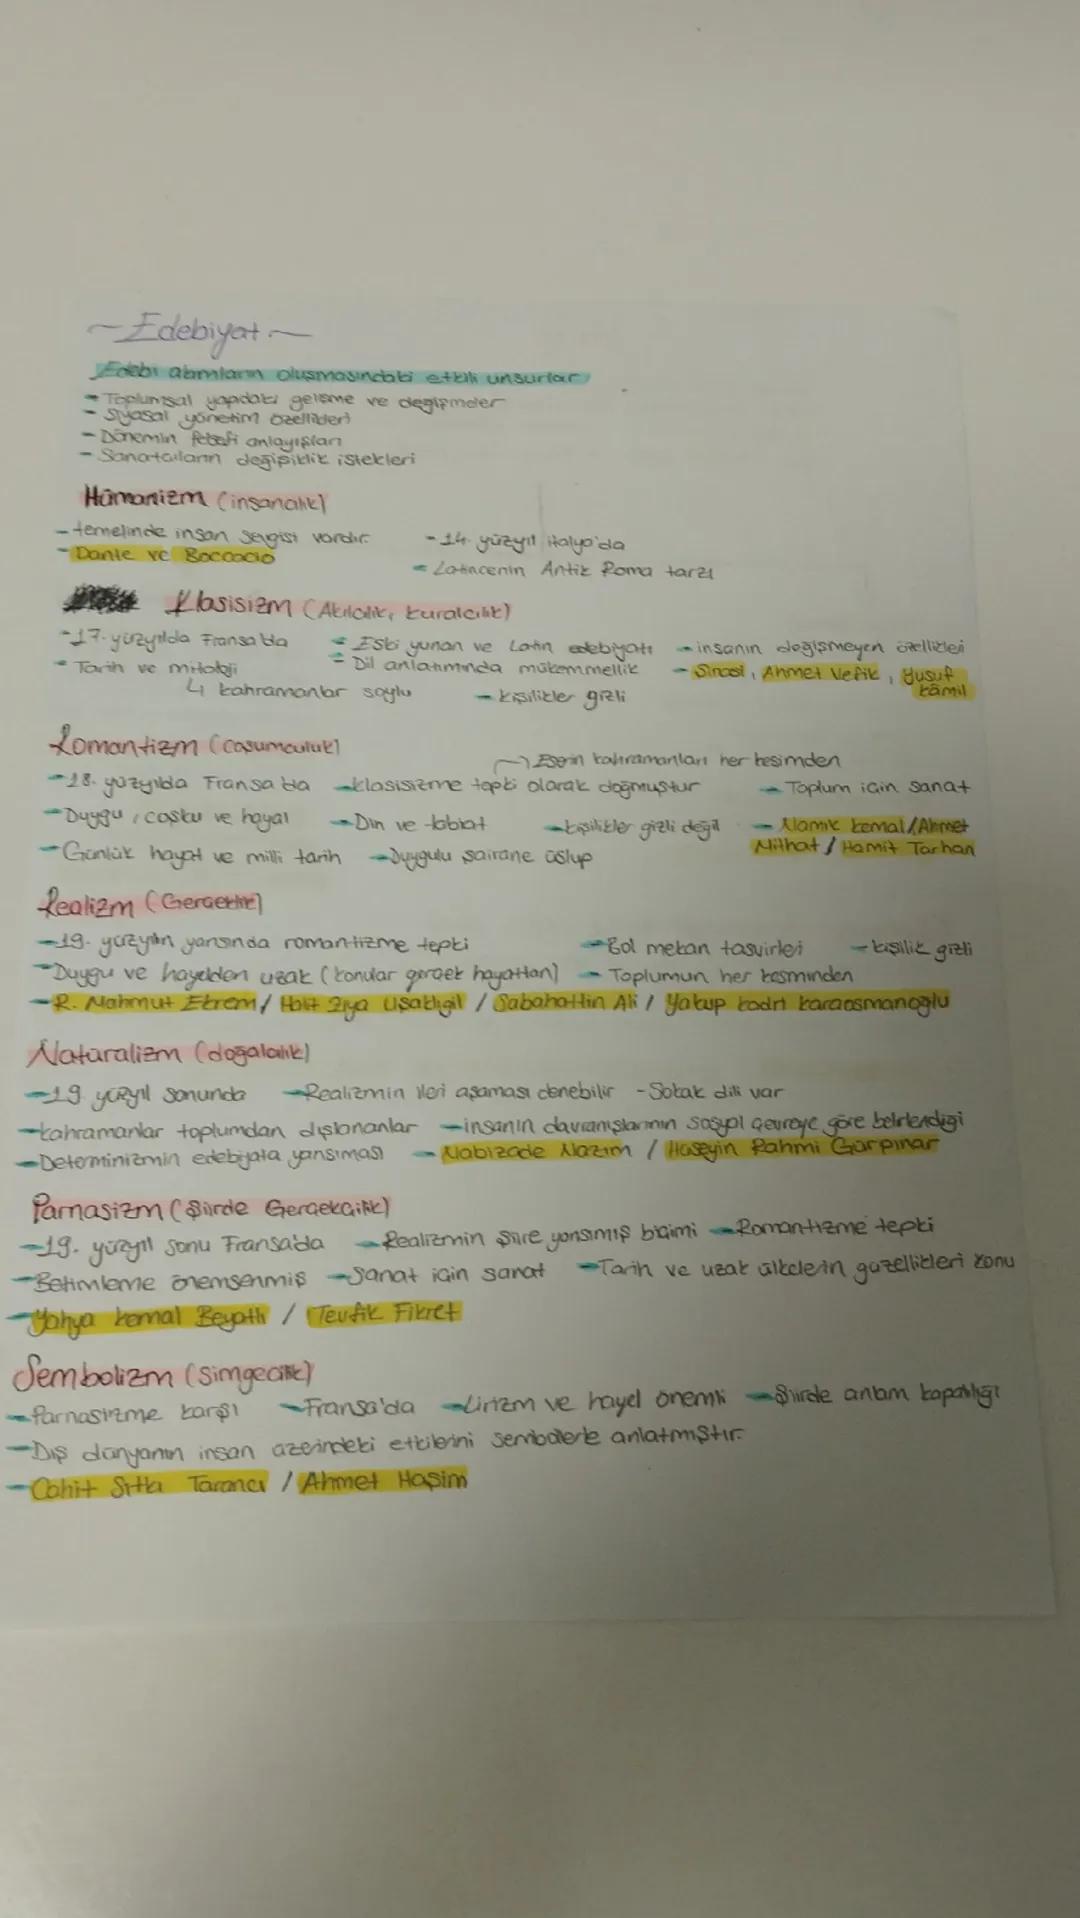 ~Edebiyat~
Edebi akımların oluşmasındaki etkili unsurlar
- Toplumsal yapıdaki gelişme ve değişmeler
- Siyasal yönetim özellikleri
- Dönemin felsefi anlayışları
- Sanatçıların değişiklik istekleri
Hümanizm (insancılık)
- temelinde insan sevgisi vardır. - 14. yüzyıl italya'da
- Dante ve Boccacio - Latincenin Antik Roma tarzı
Klasisizm (Akılcılık, kuralcılık)
- 17. yüzyılda Fransa'da - Eski yunan ve Latin edebiyatı - insanın değişmeyen özellikleri
- Tarih ve mitoloji - Dil anlatımında mükemmellik - Şinasi, Ahmet Vefik, Yusuf kâmil
↳ kahramanlar soylu - kişilikler gizli
Romantizm (coşumculuk)
→ Eserin kahramanları her kesimden
- 18. yüzyılda Fransa'da - klasisizme tepki olarak doğmuştur - Toplum için sanat
- Duygu, coşku ve hayal - Din ve tabiat - kişilikler gizli değil - Namık kemal / Ahmet
- Günlük hayat ve milli tarih - Duygulu şairane üslup Mithat / Hamit Tarhan
Realizm (Gerçeklik)
- 19. yüzyılın yarısında romantizme tepki - Bol mekan tasvirleri - kişilik gizli
- Duygu ve hayelden uzak (konular gerçek hayattan) - Toplumun her kesminden
- R. Mahmut Ekrem / Halit Ziya Uşaklıgil / Sabahattin Ali / Yakup kadri karaosmanoğlu
Natüralizm (doğalcılık)
- 19. yüzyıl sonunda - Realizmin ileri aşaması denebilir - Sokak dili var
- kahramanlar toplumdan dışlananlar - insanın davranışlarının sosyal çevreye göre belirlendiği
- Determinizmin edebiyata yansıması - Nabizade Nazım / Hüseyin Rahmi Gürpınar
Parnasizm (Şiirde Gerçekçilik)
- 19. yüzyıl sonu Fransa'da - Realizmin şiire yansımış biçimi - Romantizme tepki
- Betimleme önemsenmiş - Sanat için sanat - Tarih ve uzak ülkelerin güzellikleri konu
- Yahya kemal Beyatlı / Tevfik Fikret
Sembolizm (simgecilik)
- Parnasizme karşı - Fransa'da - Lirizm ve hayel önemli - Şiirde anlam kapalılığı
- Dış dünyanın insan üzerindeki etkilerini sembollerle anlatmıştır.
- Cahit Sıtkı Tarancı / Ahmet Haşim